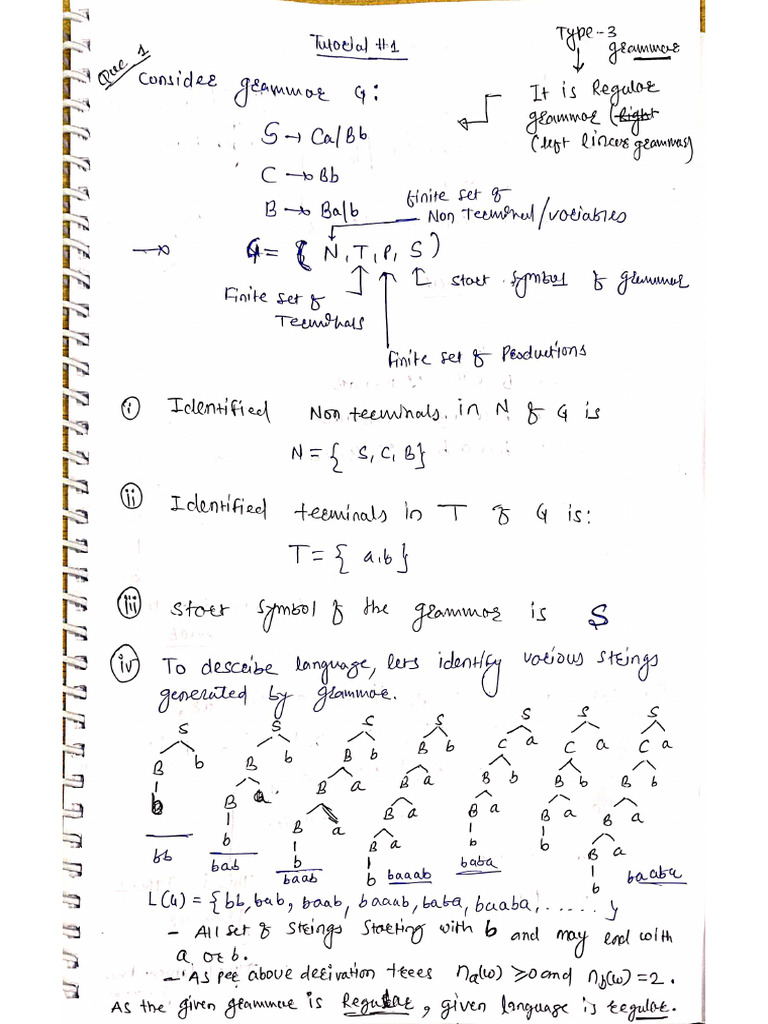 Tutorial #1
Que 1
Type-3 grammar
It is Regular
grammar (right
(left linear grammar)
Consider grammar G:
S → Ca/Bb
C → Bb
B → Ba/b
finite set of
Non Terminal/variables
G = ( N, T, P, S )
start symbol of grammar
Finite set of
Terminals
finite set of Productions
i Identified Non terminals in N of G is
N = { S, C, B}
ii Identified terminals in T of G is:
T = { a,b }
iii start symbol of the grammar is S
iv To describe language, lets identify various strings
generated by grammar.
S S S S S S S
B b B b B b B b C a C a C a
b B a B a B a B b B b B b
b B a B a B a B a B a
b B a b b B a
b b
bb bab baab baaab baba baaba
L(G) = { bb, bab, baab, baaab, baba, baaba, ..... }
- All set of strings starting with b and may end with
a or b.
- As per above derivation trees na(w) ≥0 and nb(w) = 2.
As the given grammar is Regular, given language is regular.